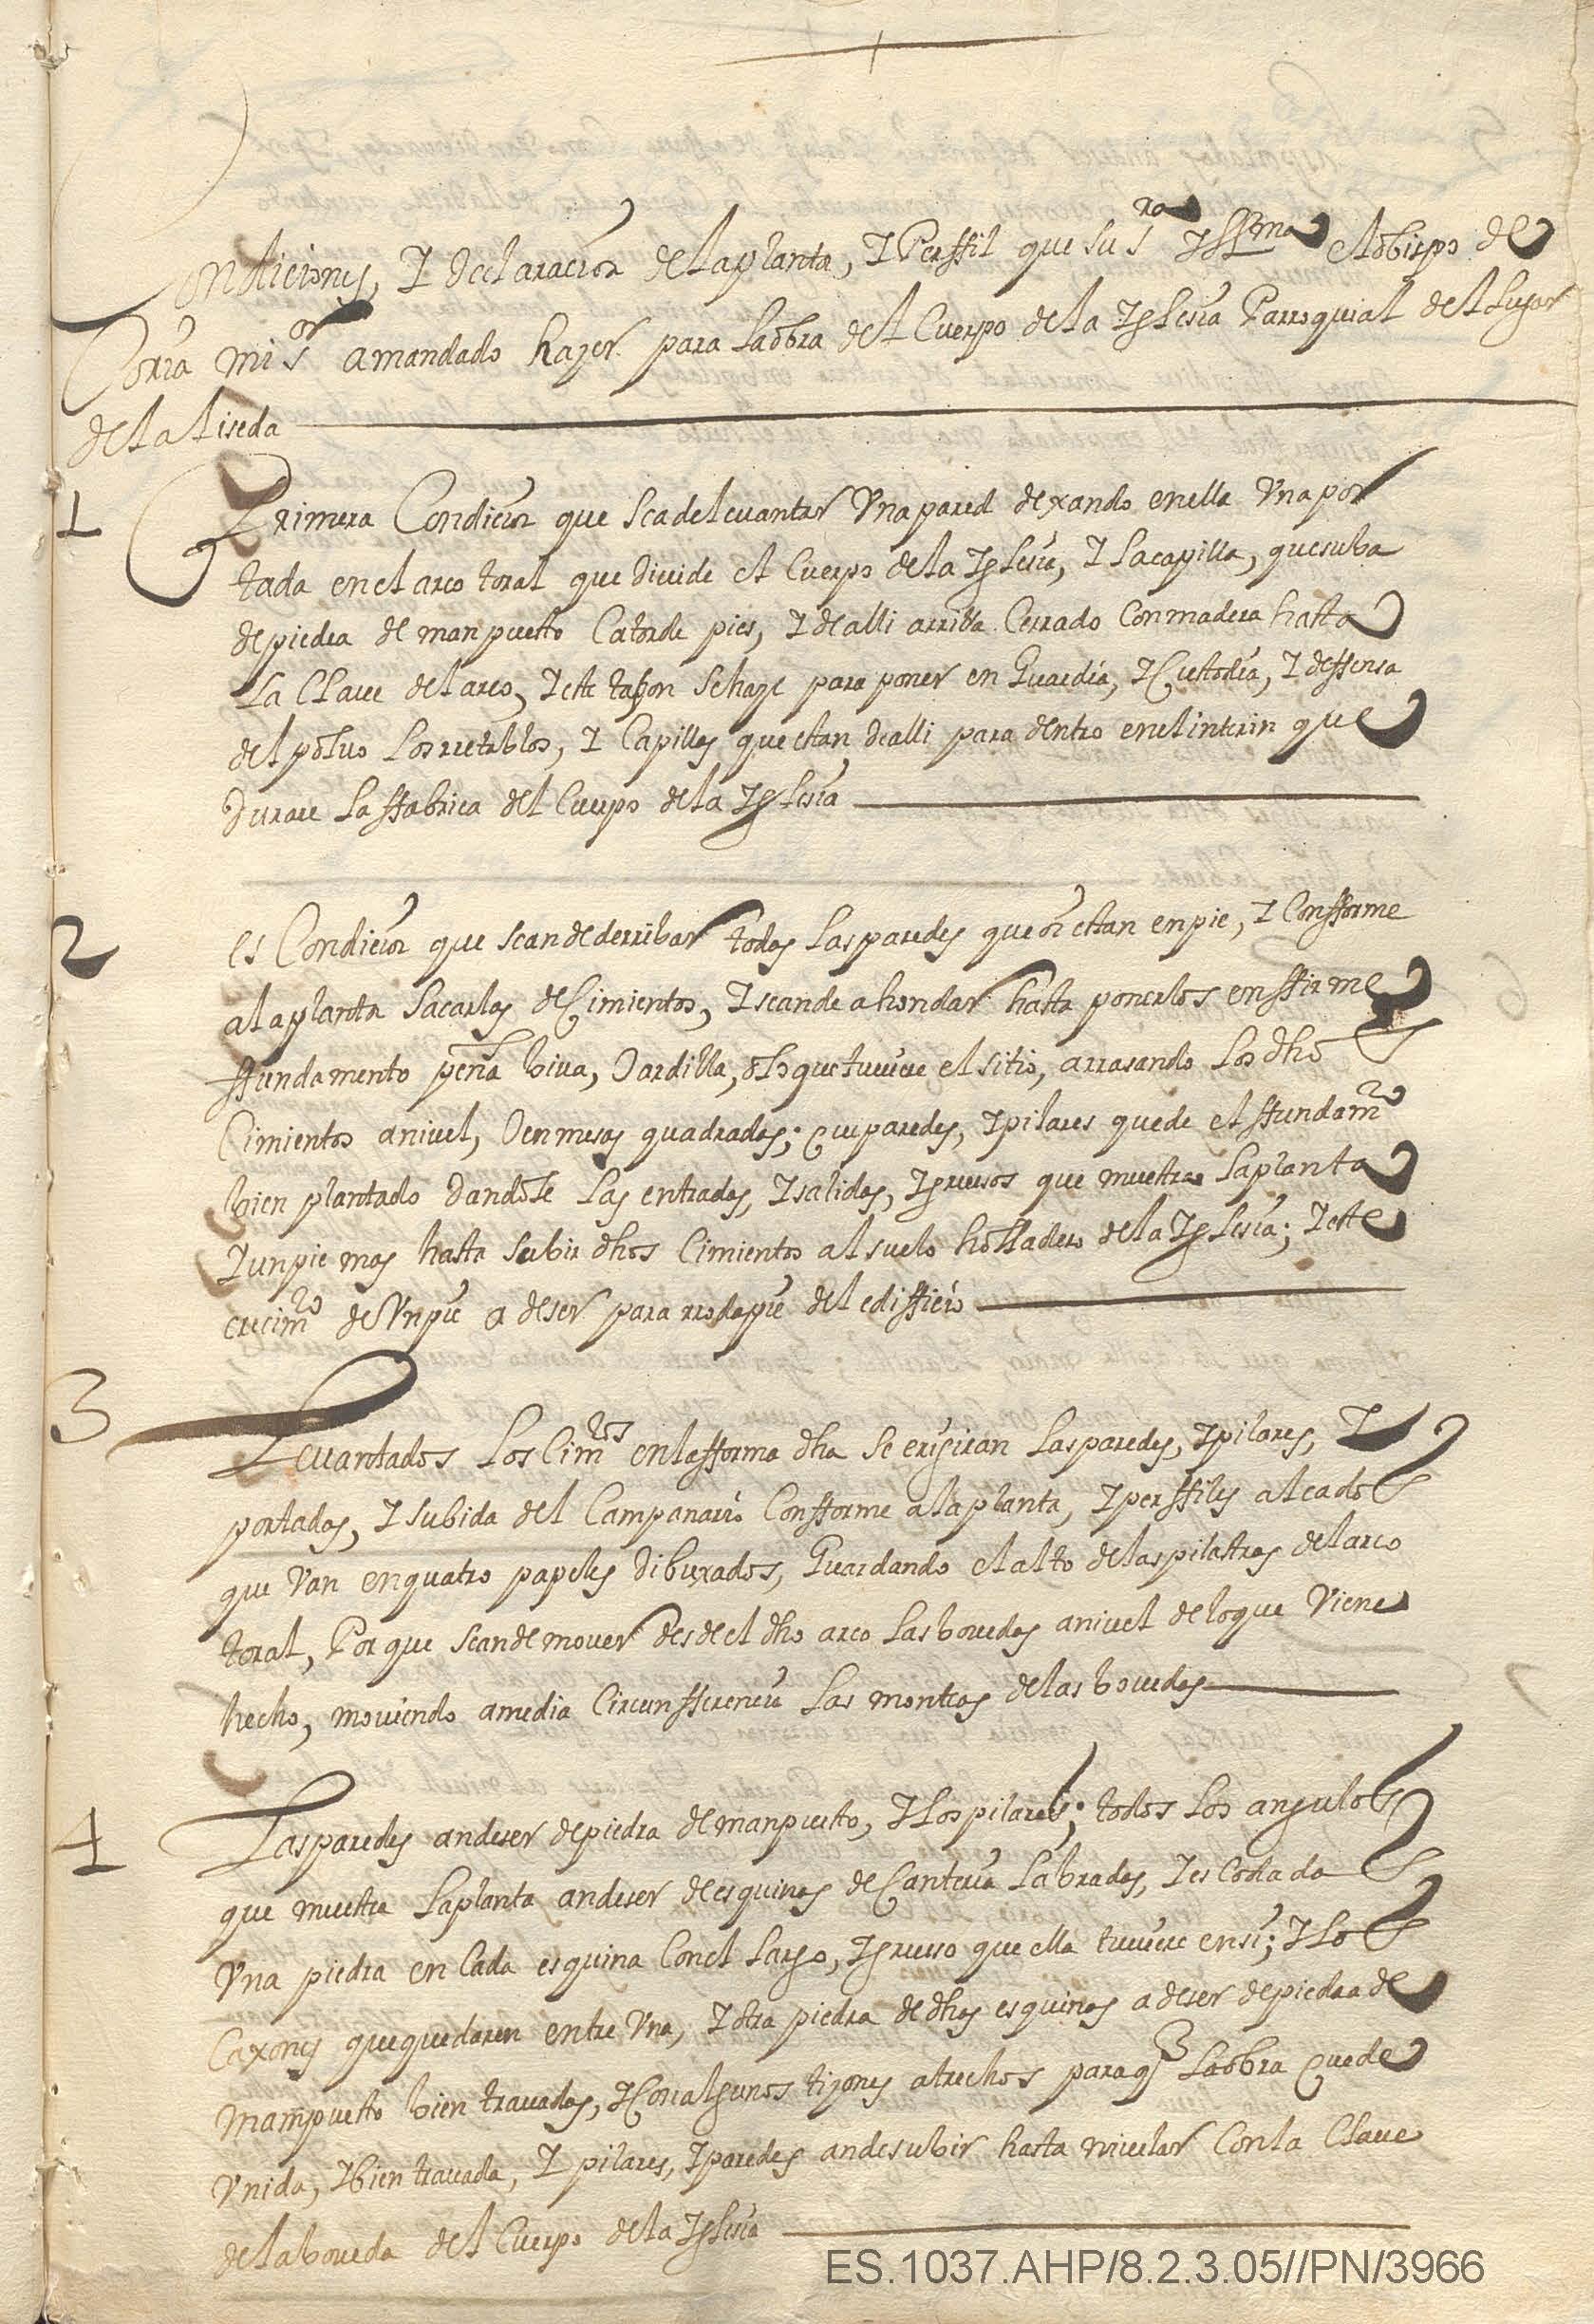 Condiciones, I declaracion de la planta, I Perffil que su s.ra Ill.ma el obispo de
Coria mi s.or a mandado hazer para la obra del Cuerpo de la Iglesia Parroquial del lugar
de la liseda
1 Primera Condicion que sea de levantar Vna pared dexando en ella Vna por
tada en el arco toral que divide el Cuerpo de la Iglesia, I la capilla, que suba
de piedra de manpuesto Catorde pies, I de alli arriba Cerrado Con madera hasta
La Clave del arco, I este tapon se haze para poner en Guardia, I Custodia, I deffensa
del poluo Los rretablos, I Capillas que estan de alli para dentro en el interin que
Durare La ffabrica del Cuerpo de la Iglesia
2 es Condicion que sean de derribar todas Las paredes que oi estan en pie, I Confforme
a la planta Sacarlas de Cimientos, I sean de ahondar hasta ponerlos en ffirme
ffundamento peña biua, O ardilla, o lo que tuuiere el sitio, arrasando Los dho
Cimientos a nivel, O en mesas quadradas; que paredes, I pilares quede el ffundam.to
bien plantado dandole Las entradas, I salidas, I gruesos que muestra La planta
I un pie mas hasta subir dhos Cimientos al suelo holladero de la Iglesia; I este
crecim.to de Vn pie a de ser para rrodapie del edifficio
3 Leuantados Los Cim.tos en la fforma dha se erigiran Las paredes, I pilares, I
portadas, I subida del Campanario Confforme a la planta, I perffiles alcado
que Van en quatro papeles dibuxados, Guardando el alto de las pilastras del arco
toral, Por que sean de mover desde el dho arco Las bouedas a nivel de lo que Viene
hecho, moviendo a media Circunfferencia Las monteas de las bouedas
4 Las paredes an de ser de piedra de manpuesto, I Los pilares; todos Los angulos
que muestra La planta an de ser de esquinas de Canteria Labradas, I escodada
Vna piedra en Cada esquina Con el Largo, I grueso que ella tuuiere en si; I Lo
Caxones que quedaren entre Vna, I otra piedra de dhas esquinas a de ser de piedra de
Mampuesto bien trauadas, I Con algunos tizones a trechos para q La obra quede
Vnida, I bien trauada, I pilares, I paredes an de subir hasta nivelar Con la Claue
de la boueda del Cuerpo de la Iglesia
ES.1037.AHP/8.2.3.05//PN/3966